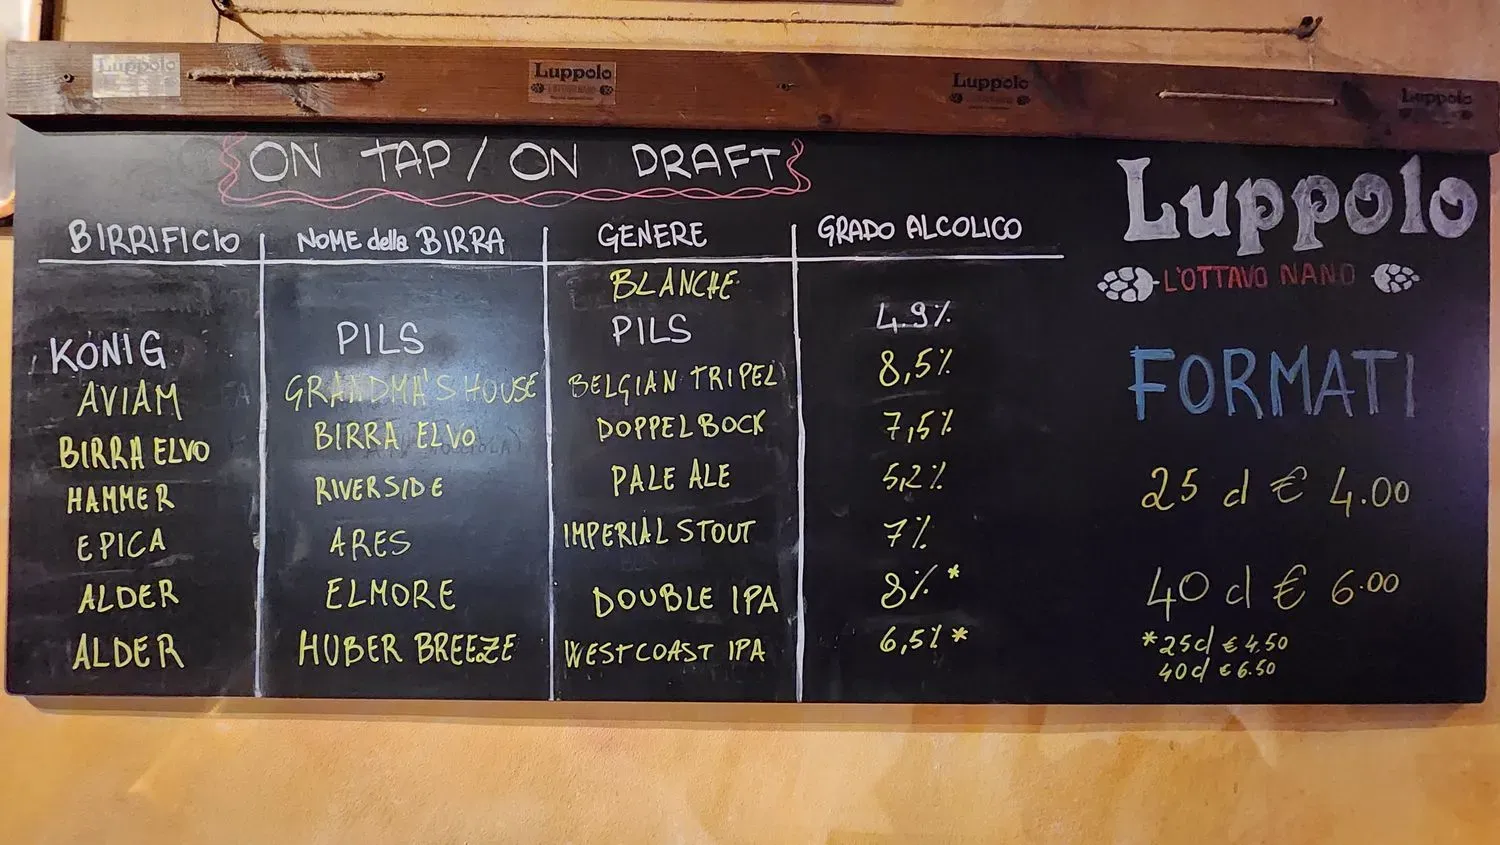 Luppolo
Luppolo
Luppolo
Luppolo
ON TAP / ON DRAFT
Luppolo
L'OTTAVO NANO
BIRRIFICIO NOME della BIRRA GENERE GRADO ALCOLICO
BLANCHE
KÖNIG PILS PILS 4.9%
AVIAM GRANDMA'S HOUSE BELGIAN TRIPEL 8,5%
BIRRA ELVO BIRRA ELVO DOPPELBOCK 7,5%
HAMMER RIVERSIDE PALE ALE 5,2%
EPICA ARES IMPERIAL STOUT 7%
ALDER ELMORE DOUBLE IPA 8% *
ALDER HUBER BREEZE WESTCOAST IPA 6,5% *
FORMATI
25 cl € 4.00
40 cl € 6.00
* 25cl € 4.50
40cl € 6.50